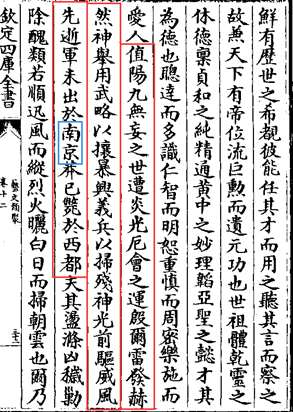 鮮有歴世之希覩彼能任其才而用之聽其言而察之
故兼天下有帝位流巨勲而遺元功也世祖體乾靈之
休德稟貞和之純精通黄中之妙理韜亞聖之懿才其
為德也聰達而多識仁智而明恕重慎而周密樂施而
愛人值陽九無妄之世遭炎光厄會之運殷爾雷發赫
然神舉用武略以攘暴興義兵以掃殘神光前驅威風
先逝軍未出於南京莽已斃於西都夫其盪滌凶穢勦
除醜類若順迅風而縱烈火曬白日而掃朝雲也爾乃
欽定四庫全書
藝文類聚
卷十二